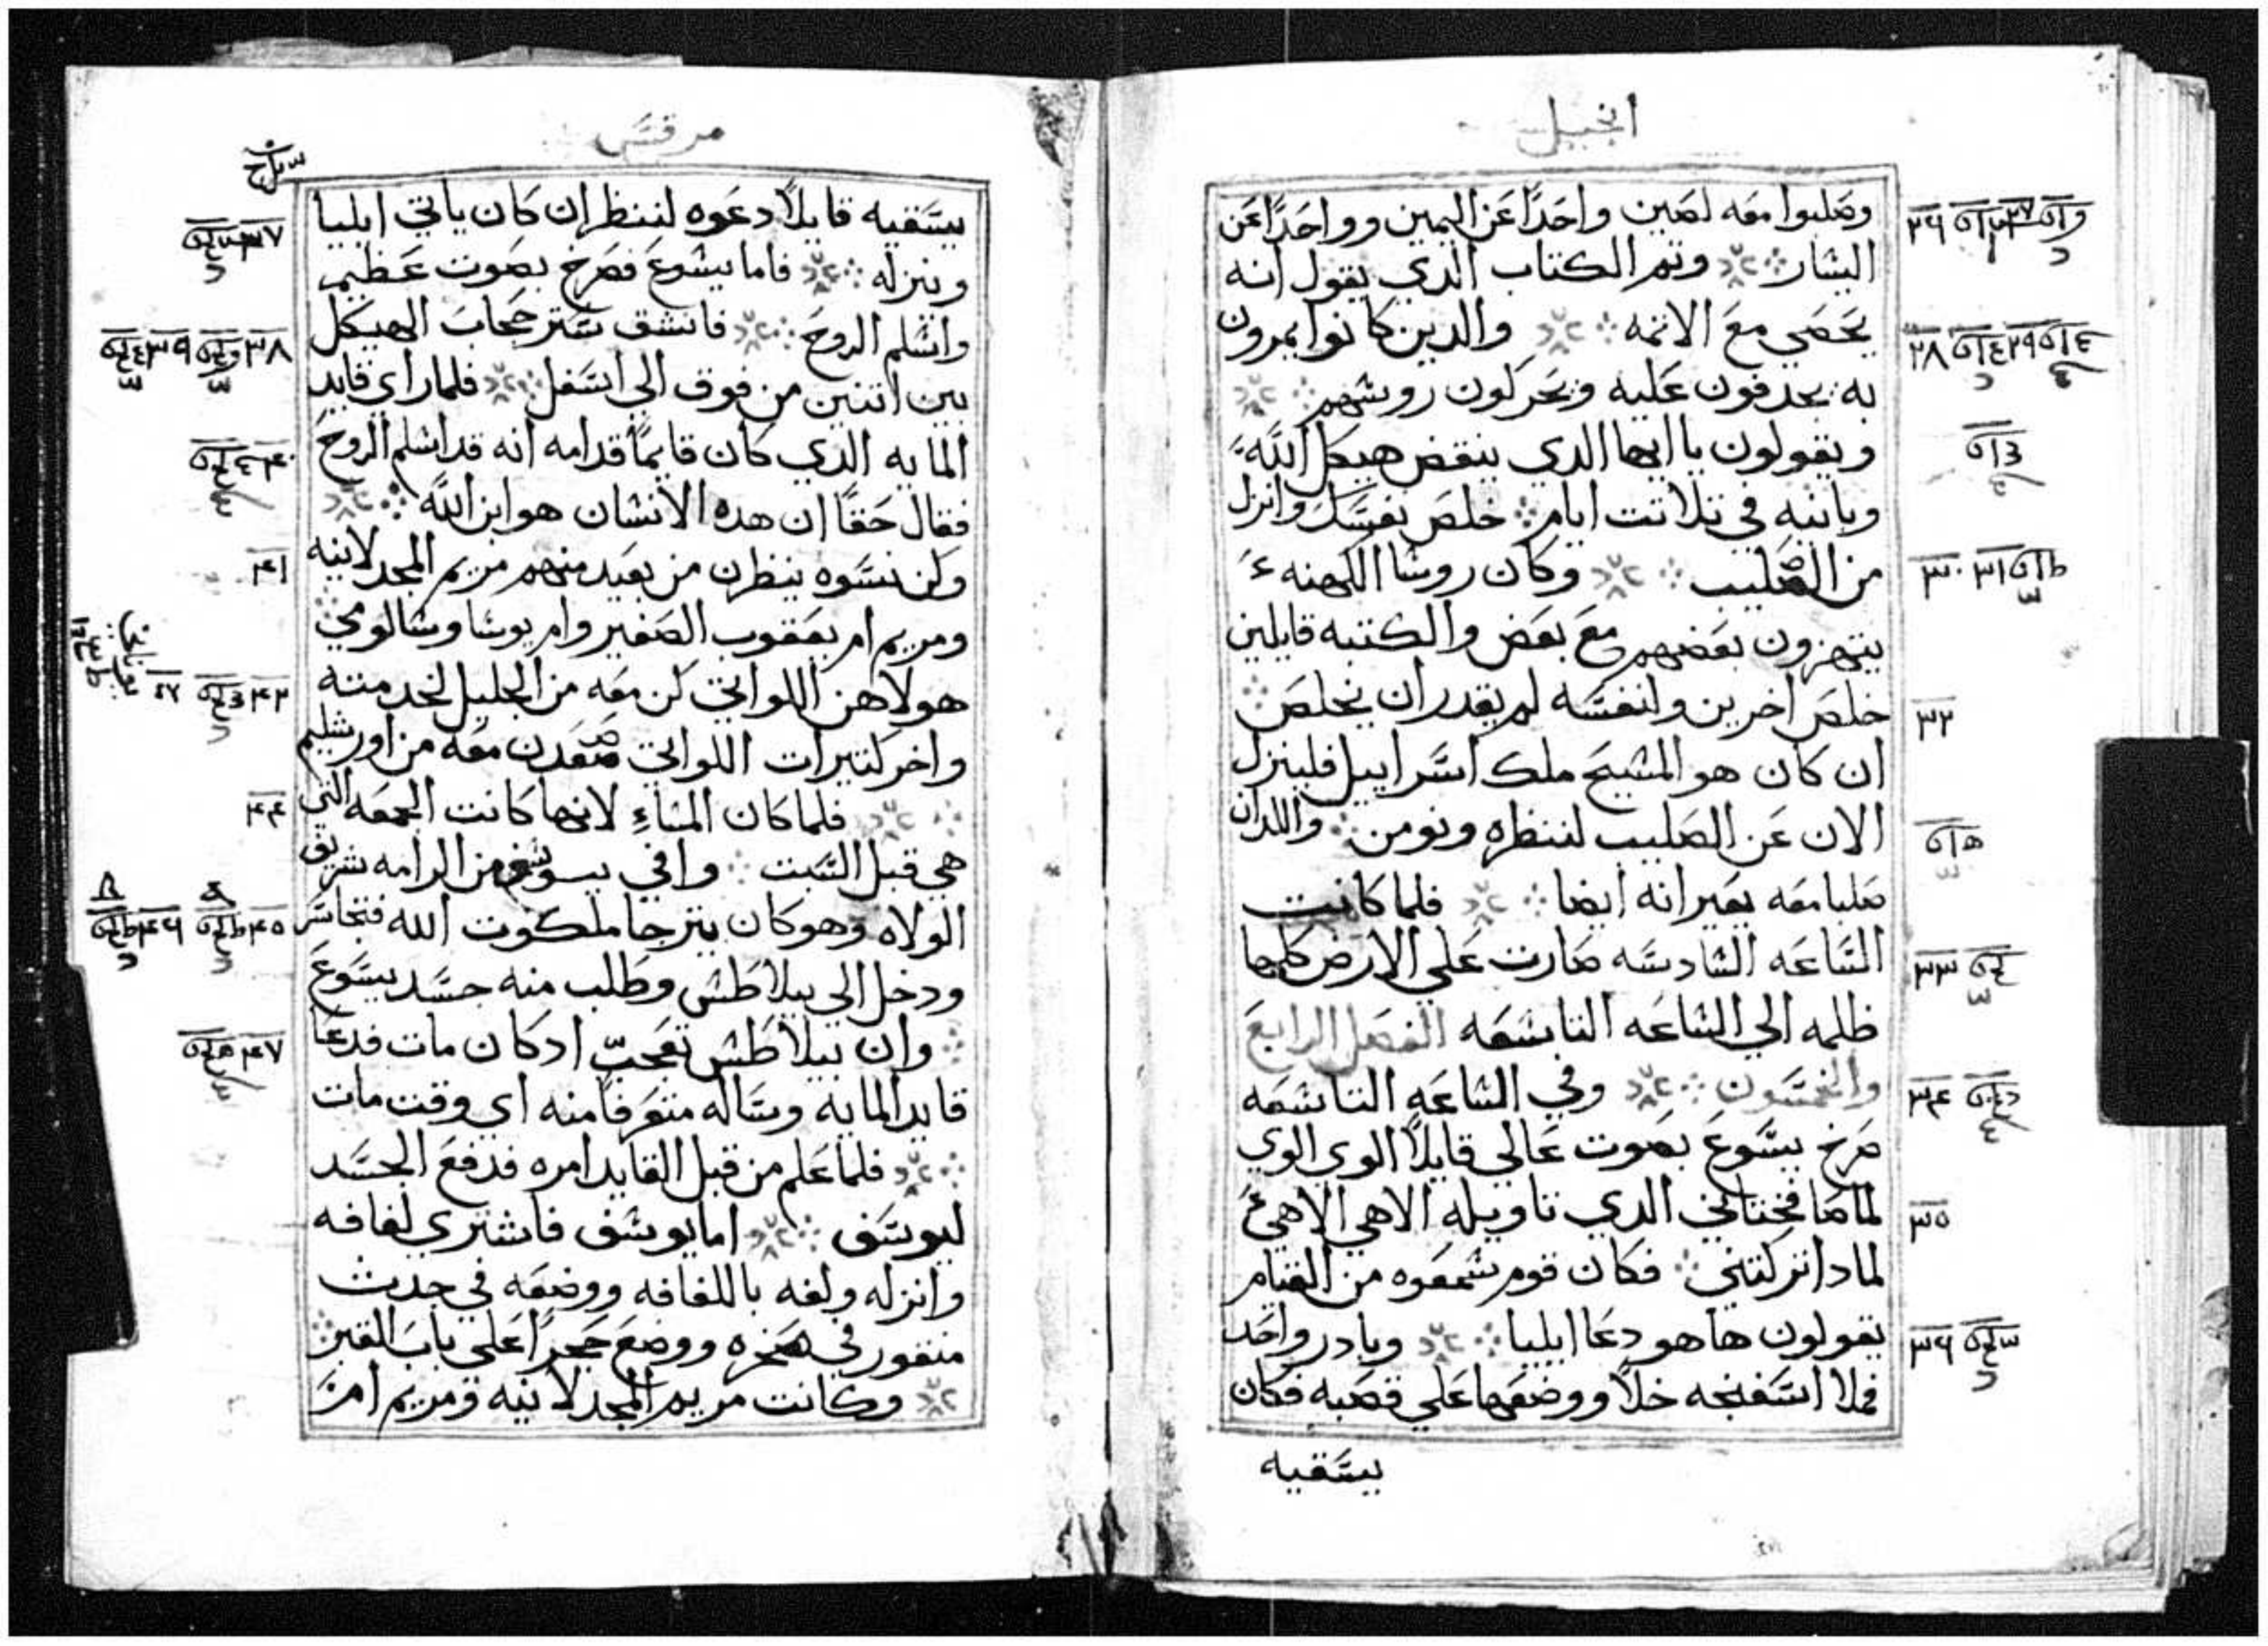 انجيل
وصلبوا معه لصين واحدًا عن اليمين وواحدًا عن
اليسار وتم الكتاب الدي يقول انه
يحصي مع الاتمه والدين كانوا يمرون
به يجدفون عليه ويحركون روسهم
ويقولون يا ايها الدي ينقض هيكل الله
ويابنيه في تلاتت ايام خلص نفسك وانزل
من الصليب وكان روسا الكهنه
يتهزون بعضهم مع بعض والكتبه قايلين
خلص اخرين ولنفسه لم يقدر ان يخلص
ان كان هو المسيح ملك اسراييل فلينزل
الان عن الصليب لننظره ونومن واللدان
صلبا معه يعيرانه ايضا فلما كانت
الساعه السادسه صارت علي الارض كلها
ظلمه الي الساعه التاسعه الفصل الرابع
والخمسون وفي الساعه التاسعه
صرخ يسوع بصوت عالي قايلًا الوي الوي
لماصافختاني الدي تاويله الاهي الاهي
لمادا تركتني فكان قوم سمعوه من القيام
يقولون ها هو دعا ايليا وبادر واحد
فملا اسفنجه خلًا ووضعها علي قصبه فكان
يسقيه
٣٢
٣٣
٣٤
٣٥
٣٦
مرقس
يسقيه قايلًا دعوه لننظر ان كان ياتي ايليا
وينزله فاما يسوع فصرخ بصوت عظيم
واسلم الروح فانشق ستر حجاب الهيكل
بين اتنين من فوق الي اسفل فلما راي قايد
المايه الدي كان قايمًا قدامه انه قد اسلم الروح
فقال حقًا ان هده الانسان هو ابن الله
وكن نسوه ينظرن من بعيد منهم مريم المجدلانيه
ومريم ام يعقوب الصغير وام يوسا وسالومي
هولاهن اللواتي كن معه من الجليل لخدمته
واخر كتيرات اللواتي صعدن معه من اورشليم
فلما كان المساءِ لانها كانت الجمعه التي
هي قبل السبت وافي يوسف من الرامه شريف
الولاه وهو كان يترجا ملكوت الله فتجاسر
ودخل الي بيلاطس وطلب منه جسد يسوع
وان بيلاطس تعجب ادكان مات فدعا
قايد المايه وساله متعرفًا منه اي وقت مات
فلما علم من قبل القايد امره فدفع الجسد
ليوسف اما يوسف فاشتري لفافه
وانزله ولفه باللفافه ووضعه في جدث
منقور في صخره ووضع حجرًا علي باب القبر
وكانت مريم المجدلانيه ومريم ام
٣٧
٣٨
٤٠
٤١
٤٤
٤٧